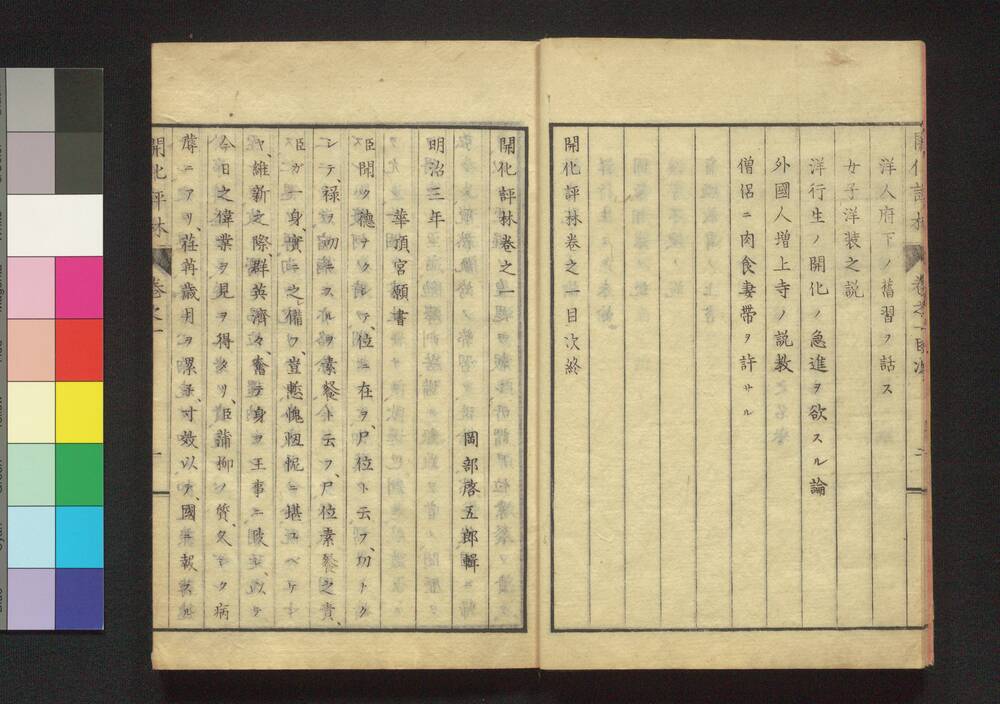 洋人府下ノ舊習ヲ話ス
女子洋装之説
洋行生ノ開化ノ急進ヲ欲スル論
外國人増上寺ノ説教
僧侶ニ肉食妻帶ヲ許サル
開化評林巻之一目次終
開化評林巻之一
岡部啓五郎輯
明治三年
華頂宮願書
臣聞ク德ナクシテ、位ニ在ヲ、尸位ト云フ、功ナク
シテ、禄ヲ
ルヲ素餐ト云フ、尸位素餐之責、
臣ガ一身、實ニ之ニ備フ、豈慙愧忸怩ニ堪ユベケ
ヤ、維新之際群英濟々、奮テ身ヲ王事ニ致、以テ
今日之偉業ヲ見ヲ得タリ、臣蒲柳ノ質、久シク病
蓐ニアリ、荏苒歳月ヲ累子、寸效以テ、國ニ報スル
開化評林
巻之一
一